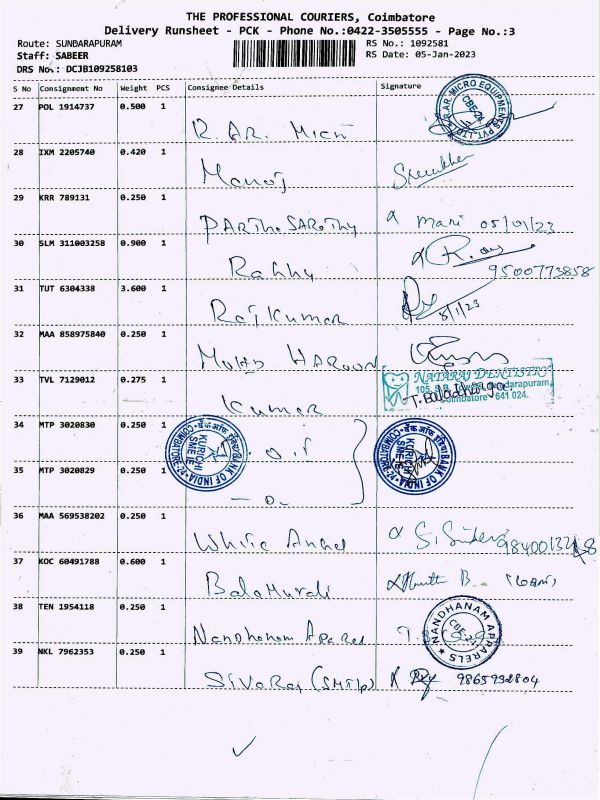 THE PROFESSIONAL COURIERS, Coimbatore
Delivery Runsheet - PCK - Phone No.:0422-3505555 - Page No.:3
Route: SUNDARAPURAM RS No.: 1092581
Staff: SABEER RS Date: 05-Jan-2023
DRS No.: DCJB109258103
S No Consignment No Weight PCS Consignee Details Signature
27 POL 1914737 0.500 1
R. AR. Micro
R.AR. MICRO EQUIPMENTS PVT. LTD.
28 IXM 2205740 0.420 1
Manoj
29 KRR 789131 0.250 1
PARTHASARATHY Mari 05/01/23
30 SLM 311003258 0.900 1
9500773858
31 TUT 6304338 3.600 1
Raj Kumar 5/1/23
32 MAA 858975840 0.250 1
MOHD HAROON
33 TVL 7129012 0.275 1
NATARAJ DENTISTRY
Sundarapuram,
Coimbatore - 641 024.
Kumar
34 MTP 3020830 0.250 1
BANK OF INDIA
KURICHI
SME IE
COIMBATORE
BANK OF INDIA
KURICHI
SME IE
COIMBATORE
35 MTP 3020829 0.250 1
36 MAA 569538202 0.250 1
White Angel
37 KOC 60491788 0.600 1
BalaMurali
38 TEN 1954118 0.250 1
Nandhanam Aparel
NANDHANAM APPARELS
39 NKL 7962353 0.250 1
SivaRaj 9865932804